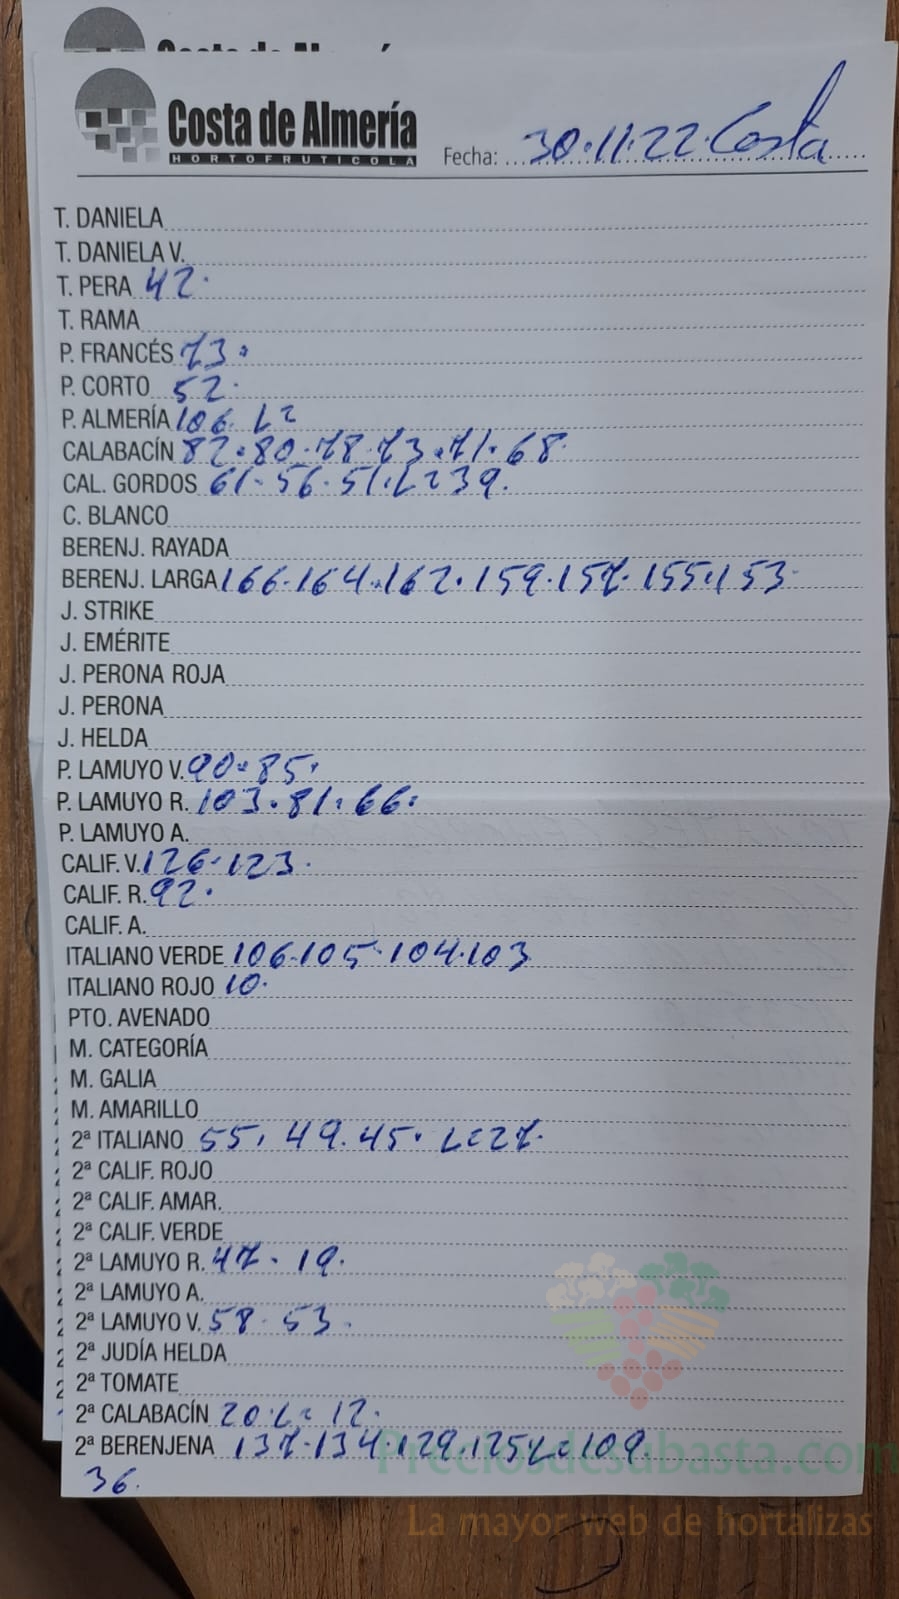 Costa de Almería
Costa de Almería
HORTOFRUTICOLA
Fecha: 30.11.22. Costa
T. DANIELA
T. DANIELA V.
T. PERA 42.
T. RAMA
P. FRANCÉS 73.
P. CORTO 52.
P. ALMERÍA 106. L=
CALABACÍN 82.80.78.73.71.68.
CAL. GORDOS 61.56.51.L=39.
C. BLANCO
BERENJ. RAYADA
BERENJ. LARGA 166.164.162.159.157.155.153.
J. STRIKE
J. EMÉRITE
J. PERONA ROJA
J. PERONA
J. HELDA
P. LAMUYO V. 90.85.
P. LAMUYO R. 103.81.66.
P. LAMUYO A.
CALIF. V. 126.123.
CALIF. R. 92.
CALIF. A.
ITALIANO VERDE 106.105.104.103
ITALIANO ROJO 10.
PTO. AVENADO
M. CATEGORÍA
M. GALIA
M. AMARILLO
2ª ITALIANO 55. 49. 45. L=27.
2ª CALIF. ROJO
2ª CALIF. AMAR.
2ª CALIF. VERDE
2ª LAMUYO R. 47. 19.
2ª LAMUYO A.
2ª LAMUYO V. 58. 53.
2ª JUDÍA HELDA
2ª TOMATE
2ª CALABACÍN 20.L= 12.
2ª BERENJENA 137.134.129.125L=109.
36.
Preciosdesubasta.com
La mayor web de hortalizas